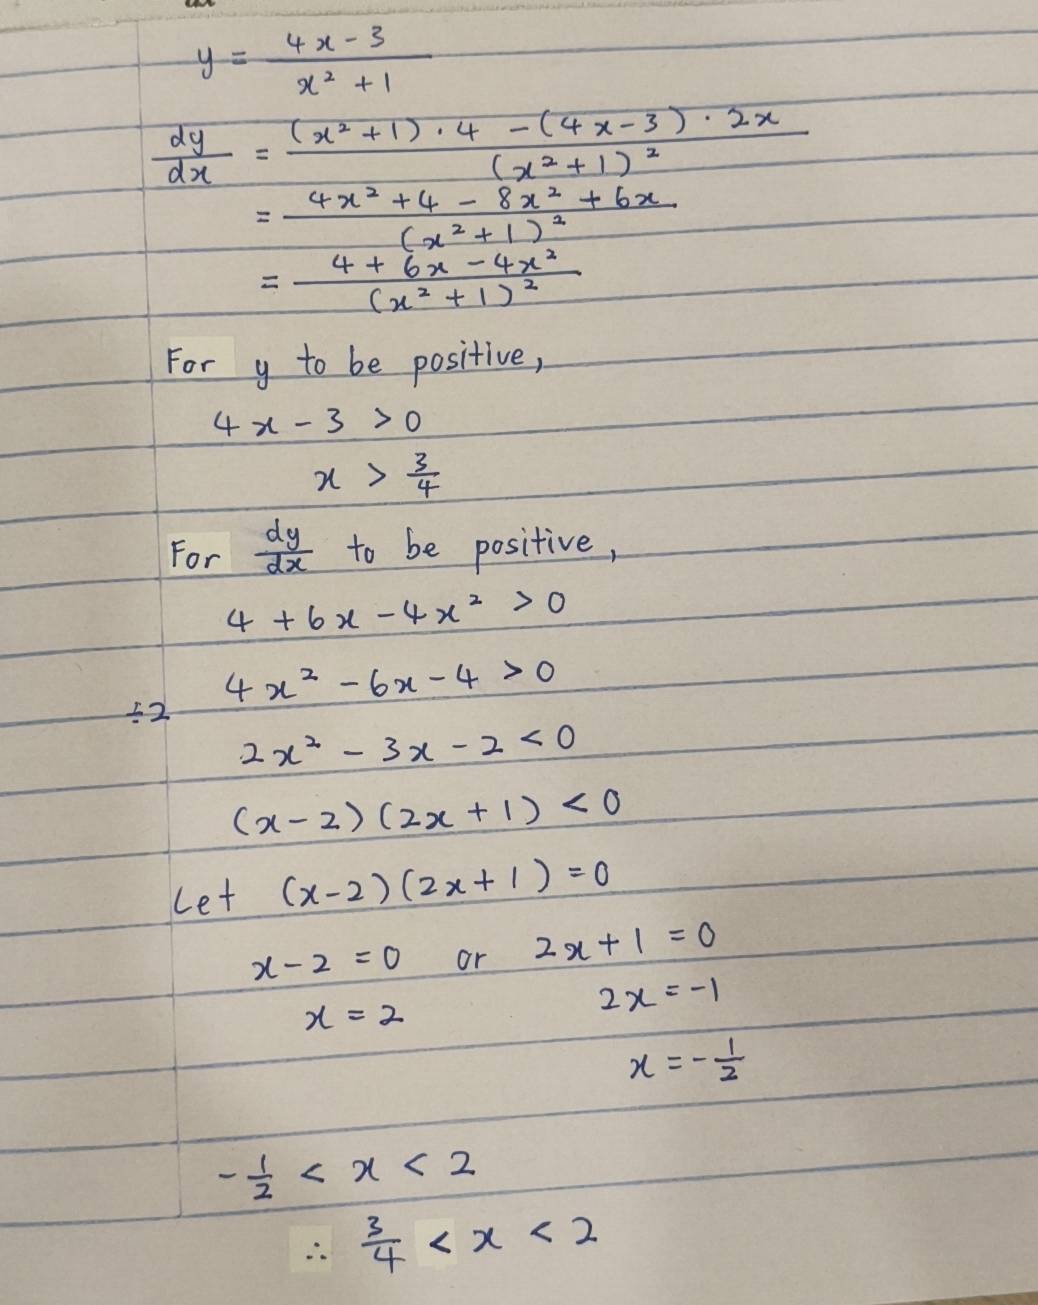 y = (4x - 3)/(x² + 1)
dy/dx = ((x² + 1) · 4 - (4x - 3) · 2x)/(x² + 1)²
= (4x² + 4 - 8x² + 6x)/(x² + 1)²
= (4 + 6x - 4x²)/(x² + 1)²
For y to be positive,
4x - 3 > 0
x > 3/4
For dy/dx to be positive,
4 + 6x - 4x² > 0
4x² - 6x - 4 > 0
÷2 2x² - 3x - 2 < 0
(x - 2)(2x + 1) < 0
Let (x - 2)(2x + 1) = 0
x - 2 = 0 or 2x + 1 = 0
x = 2 2x = -1
x = -1/2
-1/2 < x < 2
∴ 3/4 < x < 2